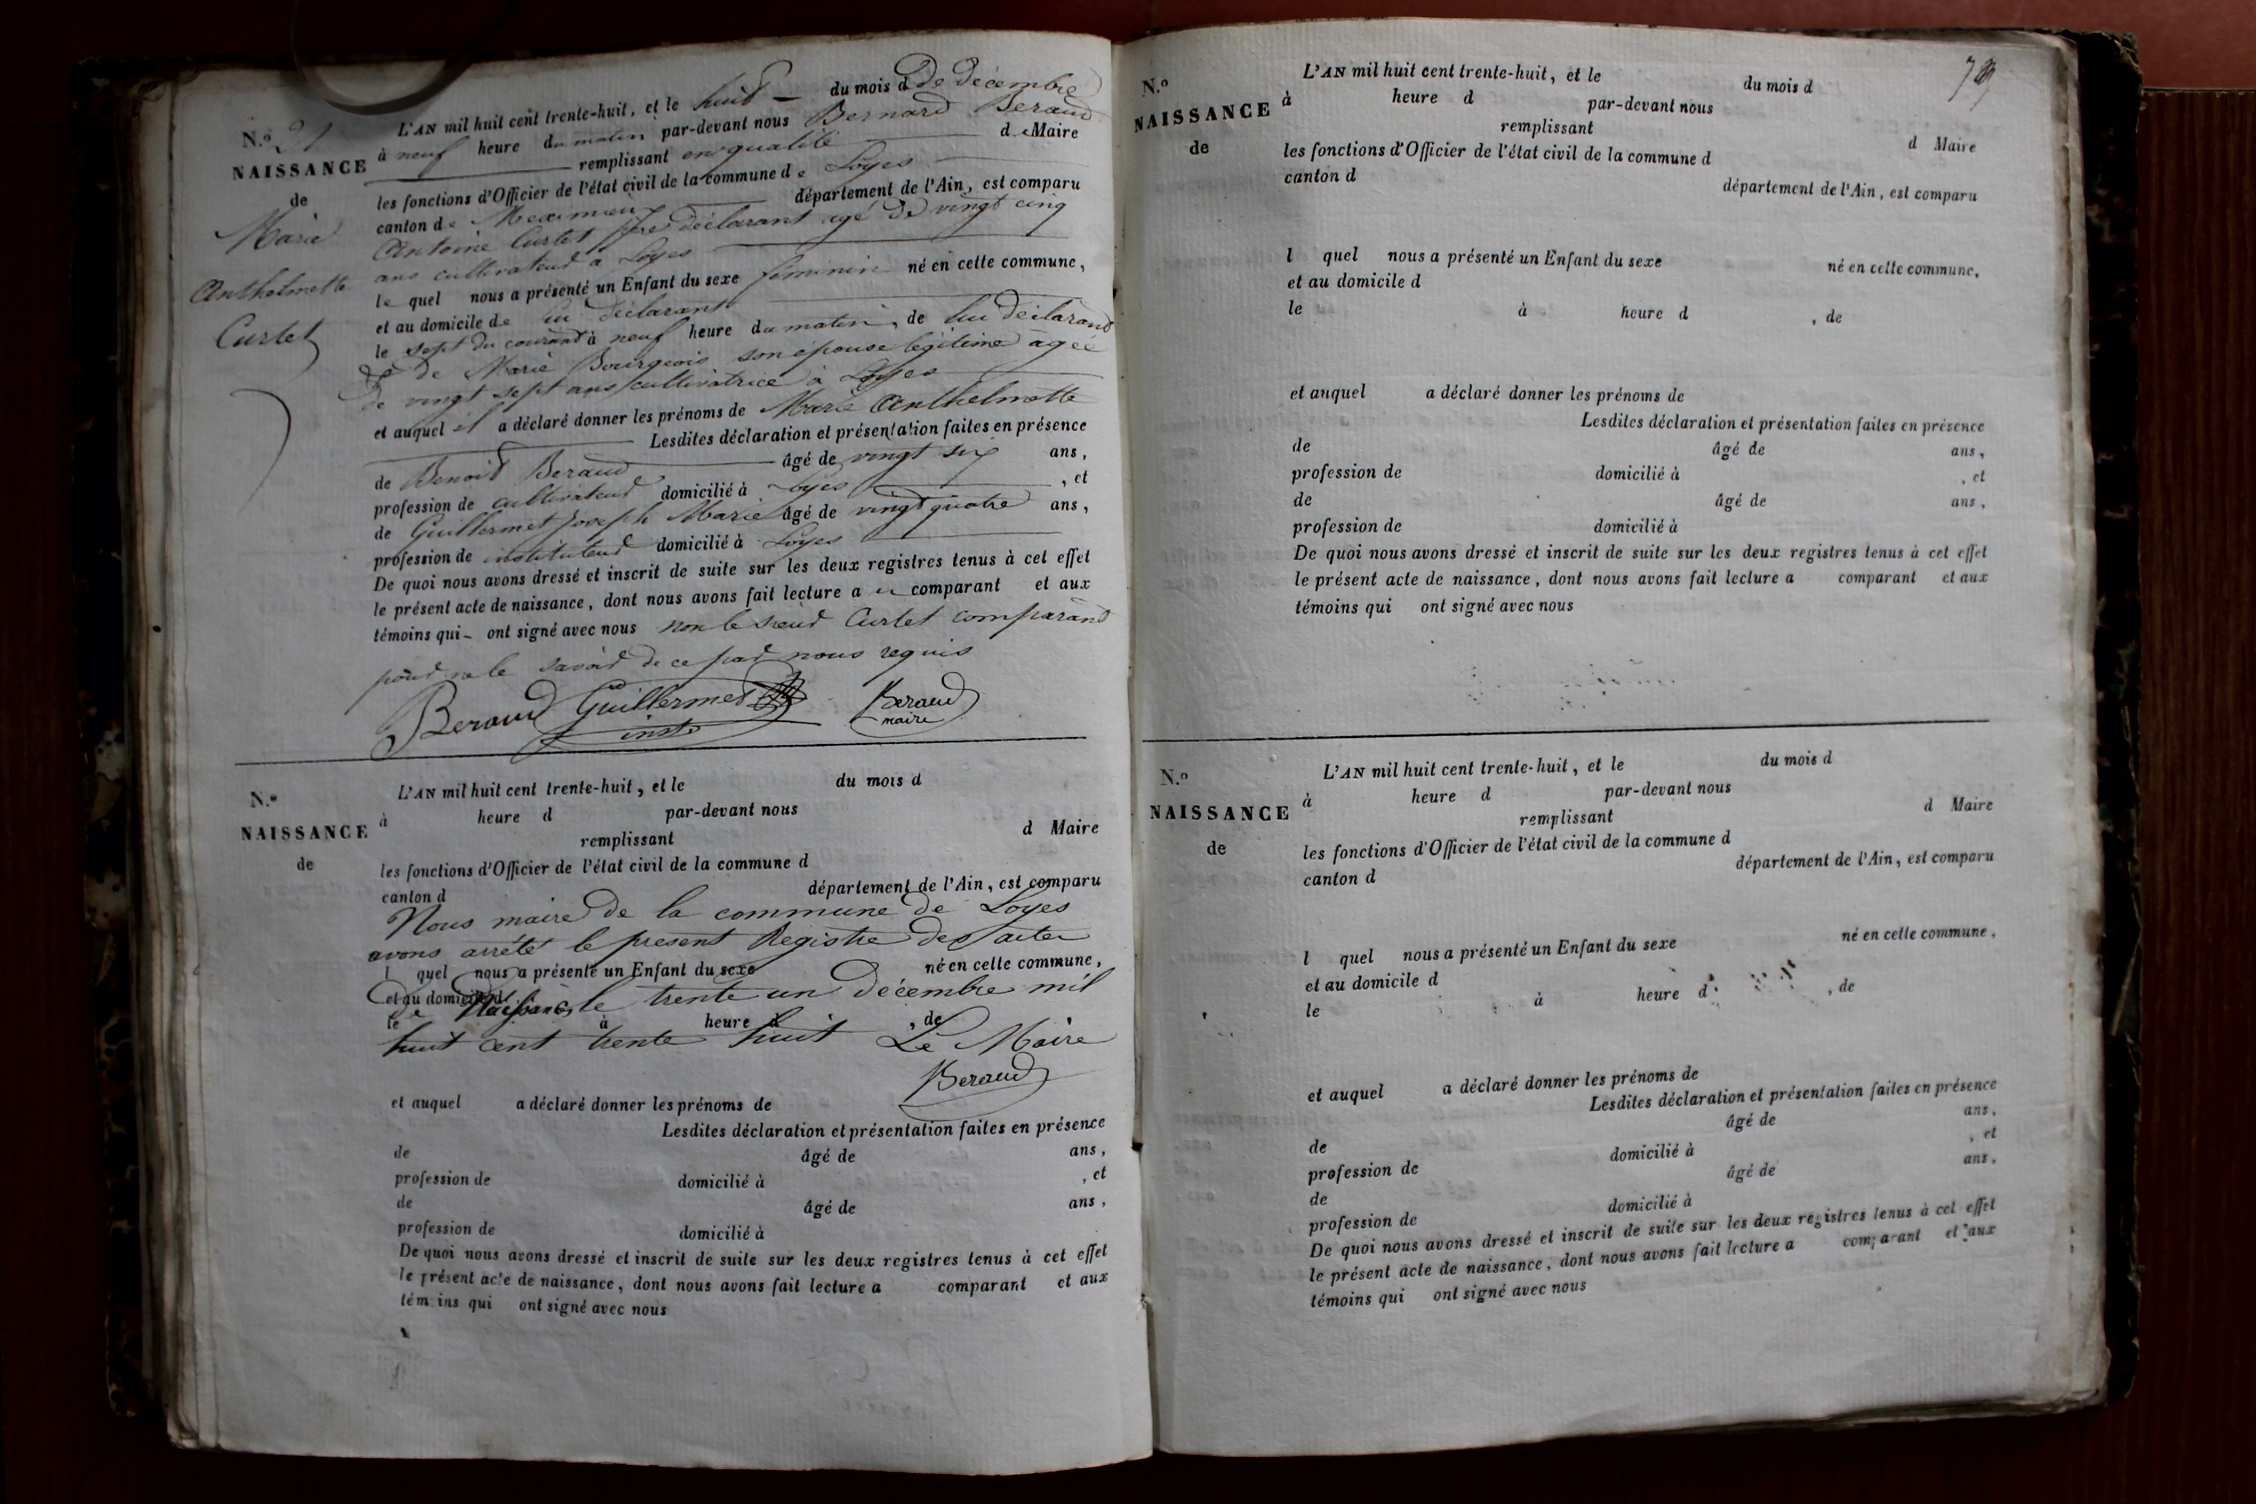 N.º 21
NAISSANCE
de
Marie
Anthelmette
Curtet
L'AN mil huit cent trente-huit, et le huit du mois d de décembre
à neuf heure du matin par-devant nous Bernard Beraud
remplissant en qualité d e Maire
les fonctions d'Officier de l'état civil de la commune de Loyes
canton de Meximieux département de l'Ain, est comparu
Antoine Curtet père déclarant agé de vingt cinq
ans cultivateur a Loyes
le quel nous a présenté un Enfant du sexe féminin né en cette commune,
et au domicile de lui déclarant
le sept du courant à neuf heure du matin, de lui déclarant
et de Marie Bourgeois son epouse légitime agée
de vingt sept ans cultivatrice à Loyes
et auquel il a déclaré donner les prénoms de Marie Anthelmette
Lesdites déclaration et présentation faites en présence
de Benoit Beraud âgé de vingt six ans,
profession de cultivateur domicilié à Loyes, et
de Guillermet Joseph Marie âgé de vingt quatre ans,
profession de instituteur domicilié à Loyes
De quoi nous avons dressé et inscrit de suite sur les deux registres tenus à cet effet
le présent acte de naissance, dont nous avons fait lecture au comparant et aux
témoins qui ont signé avec nous non le sieur Curtet comparant
pour ne le savoir de ce par nous requis
Beraud Guillermet Beraud
inst. maire
N.º
NAISSANCE
de
L'AN mil huit cent trente-huit, et le du mois d
à heure d par-devant nous
remplissant d Maire
les fonctions d'Officier de l'état civil de la commune d
canton d département de l'Ain, est comparu
Nous maire de la commune de Loyes
avons arrêté le present Registre des actes
l quel nous a présenté un Enfant du sexe né en cette commune,
et au domicile d
de Naissance le trente un décembre mil
le à heure d , de
huit cent trente huit Le Maire
Beraud
et auquel a déclaré donner les prénoms de
Lesdites déclaration et présentation faites en présence
de âgé de ans,
profession de domicilié à , et
de âgé de ans,
profession de domicilié à
De quoi nous avons dressé et inscrit de suite sur les deux registres tenus à cet effet
le présent acte de naissance, dont nous avons fait lecture a comparant et aux
témoins qui ont signé avec nous
N.º
NAISSANCE
de
L'AN mil huit cent trente-huit, et le du mois d
à heure d par-devant nous
remplissant d Maire
les fonctions d'Officier de l'état civil de la commune d
canton d département de l'Ain, est comparu
l quel nous a présenté un Enfant du sexe né en cette commune,
et au domicile d
le à heure d , de
et auquel a déclaré donner les prénoms de
Lesdites déclaration et présentation faites en présence
de âgé de ans,
profession de domicilié à , et
de âgé de ans,
profession de domicilié à
De quoi nous avons dressé et inscrit de suite sur les deux registres tenus à cet effet
le présent acte de naissance, dont nous avons fait lecture a comparant et aux
témoins qui ont signé avec nous
N.º
NAISSANCE
de
L'AN mil huit cent trente-huit, et le du mois d
à heure d par-devant nous
remplissant d Maire
les fonctions d'Officier de l'état civil de la commune d
canton d département de l'Ain, est comparu
l quel nous a présenté un Enfant du sexe né en cette commune,
et au domicile d
le à heure d , de
et auquel a déclaré donner les prénoms de
Lesdites déclaration et présentation faites en présence
de âgé de ans,
profession de domicilié à , et
de âgé de ans,
profession de domicilié à
De quoi nous avons dressé et inscrit de suite sur les deux registres tenus à cet effet
le présent acte de naissance, dont nous avons fait lecture a comparant et aux
témoins qui ont signé avec nous